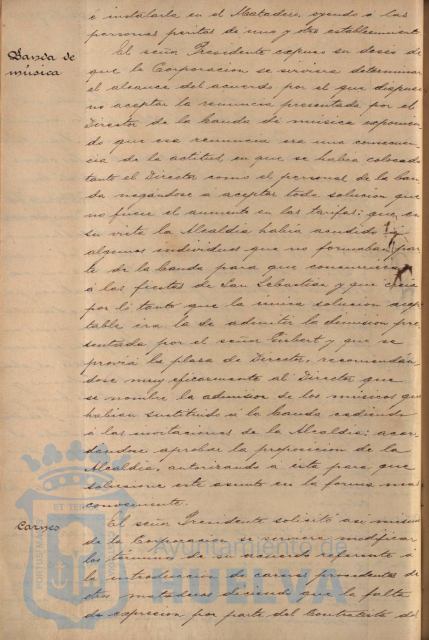 é instalarla en el Matadero, oyendo á las
personas peritas de uno y otro establecimiento
Banda de música
El señor Presidente expuso su deseo de
que la Corporacion se sirviera determinar
el alcance del acuerdo por el que dispuso
no aceptar la renuncia presentada por el
Director de la banda de música exponien
do que esa renuncia era una consecuen
cia de la actitud en que se habia colocado
tanto el Director como el personal de la ban
da negándose á aceptar toda solucion que
no fuese el aumento en las tarifas: que en
su vista la Alcaldía habia acudido á
algunos individuos que no formaban par
te de la banda para que concurrieran
á las fiestas de San Sebastian y que creia
por lo tanto que la única solucion acep
table era la de admitir la dimision pre
sentada por el señor Gisbert y que se
provea la plaza de Director, recomendán
dose muy eficazmente al Director que
se nombre la admision de los músicos que
habian sustituido á la banda cediendo
á las invitaciones de la Alcaldía: acor
dandose aprobar la proposicion de la
Alcaldía, autorizando á esta para que
solucione este asunto en la forma mas
conveniente.
Carnes
El señor Presidente solicitó asi mismo
de la Corporacion se sirviera modificar
los términos referente á
la introduccion de carnes procedentes de
otros mataderos diciendo que la falta
de expresion por parte del Contratista de
Ayuntamiento de
HUELVA